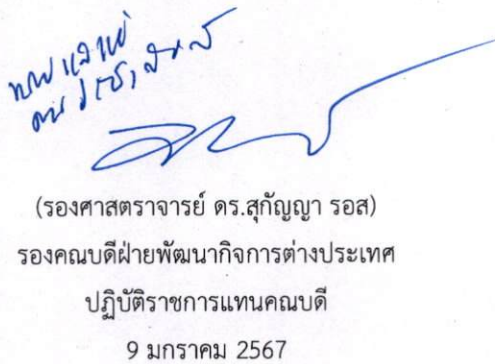 (รองศาสตราจารย์ ดร.สุกัญญา รอส)
รองคณบดีฝ่ายพัฒนากิจการต่างประเทศ
ปฏิบัติราชการแทนคณบดี
9 มกราคม 2567